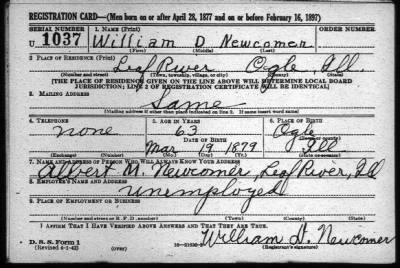 REGISTRATION CARD—(Men born on or after April 28, 1877 and on or before February 16, 1897)
SERIAL NUMBER 1. NAME (Print) ORDER NUMBER
U 1037 William D Newcomer
(First) (Middle) (Last)
2. PLACE OF RESIDENCE (Print)
Leaf River Ogle Ill.
(Number and street) (Town, township, village, or city) (County) (State)
[THE PLACE OF RESIDENCE GIVEN ON THE LINE ABOVE WILL DETERMINE LOCAL BOARD
JURISDICTION; LINE 2 OF REGISTRATION CERTIFICATE WILL BE IDENTICAL]
3. MAILING ADDRESS
Same
[Mailing address if other than place indicated on line 2. If same insert word same]
4. TELEPHONE 5. AGE IN YEARS 6. PLACE OF BIRTH
none 63 Ogle
DATE OF BIRTH (Town or county)
Mar 19 1879 Ill
(Exchange) (Number) (Mo.) (Day) (Yr.) (State or country)
7. NAME AND ADDRESS OF PERSON WHO WILL ALWAYS KNOW YOUR ADDRESS
Albert M. Newcomer, Leaf River, Ill
8. EMPLOYER'S NAME AND ADDRESS
unemployed
9. PLACE OF EMPLOYMENT OR BUSINESS
(Number and street or R. F. D. number) (Town) (County) (State)
I AFFIRM THAT I HAVE VERIFIED ABOVE ANSWERS AND THAT THEY ARE TRUE.
D. S. S. Form 1
(Revised 4-1-42) (over) William D. Newcomer
(Registrant's signature)